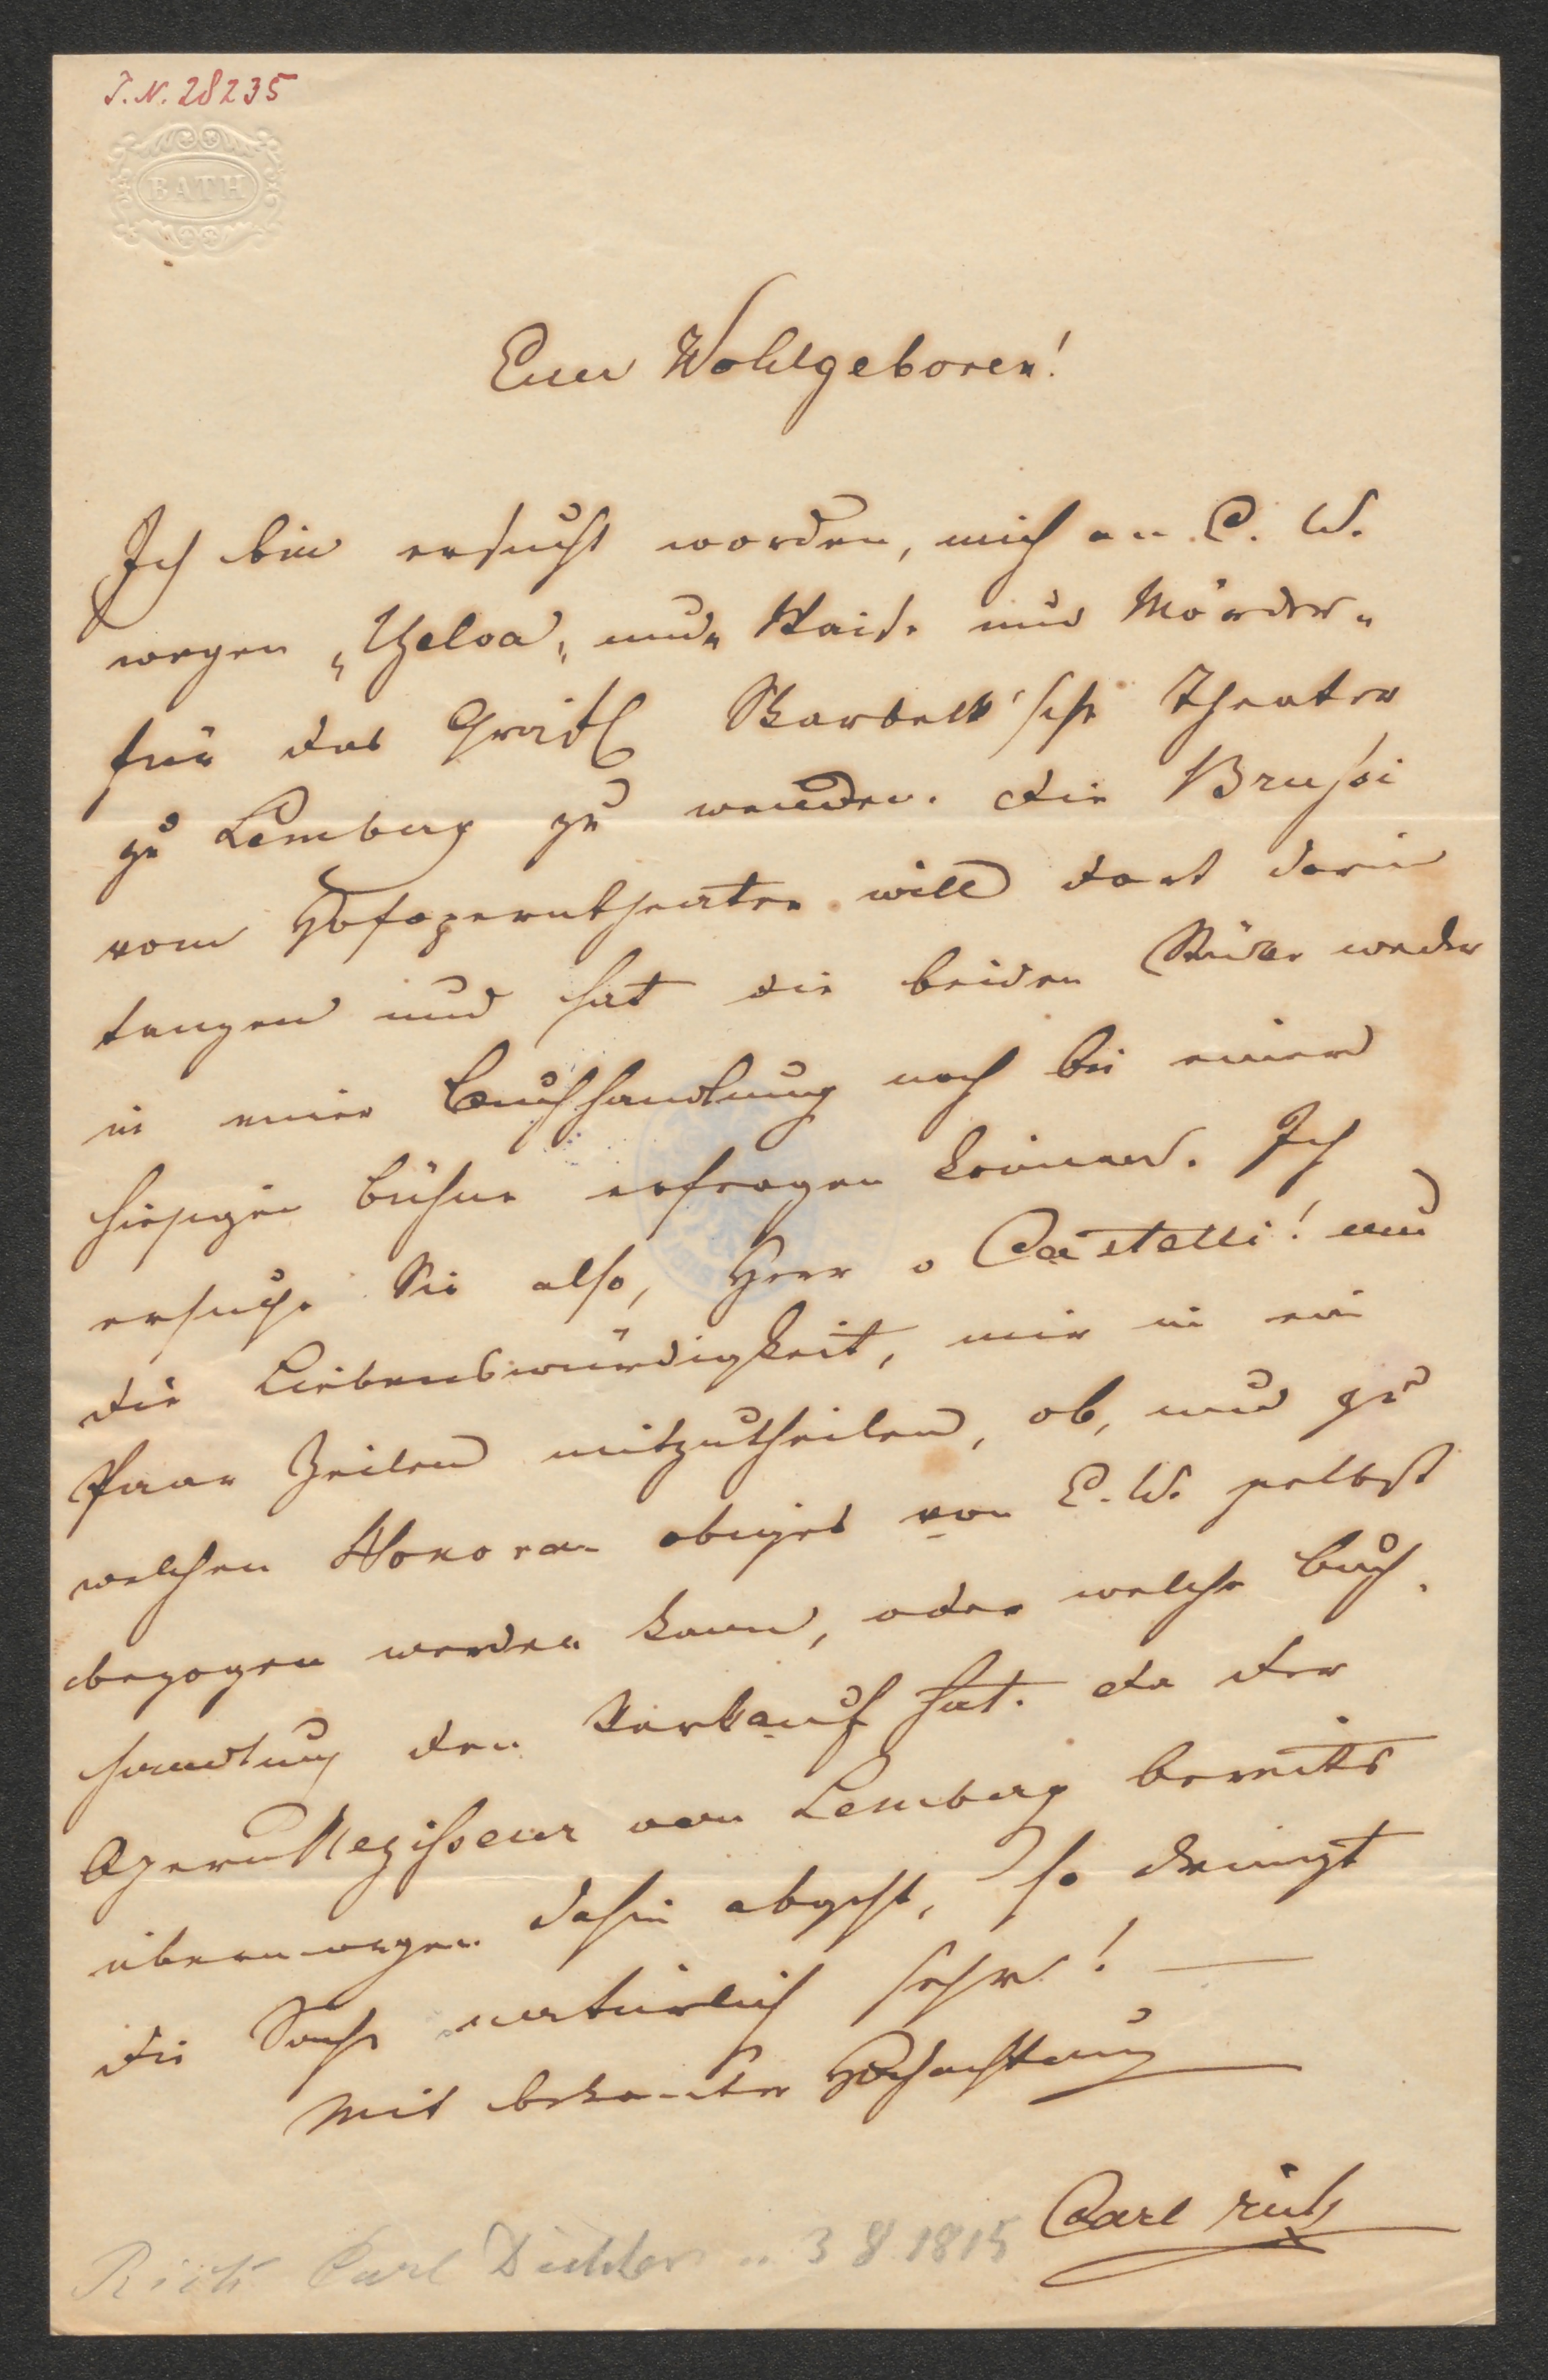 I. N. 28235
BATH
Euer Wohlgeboren!
Ich bin ersucht worden, mich an E. W.
wegen „Yelva„ und „Waise und Mörder„
für das Gräfl Skarbek'sche Theater
zu Lemberg zu wenden. Die Brussi
vom Hofoperntheater will dort darin
tanzen und hat die beiden Stücke weder
in einer Buchhandlung noch bei einer
hiesigen Bühne erfragen können. Ich
ersuche Sie also, Herr v Castelli! um
die Liebenswürdigkeit, mir in ein
Paar Zeilen mitzutheilen, ob, und zu
welchem Honorar obiges von E. W. selbst
bezogen werden kann, oder welche Buch-
handlung den Verkauf hat. Da der
OpernRegisseur von Lemberg bereits
übermorgen dahin abgeht, so dringt
die Sache natürlich sehr! —
Mit bekannter Hochachtung
Carl Rick
Rick Carl Dichter 3 8 1815